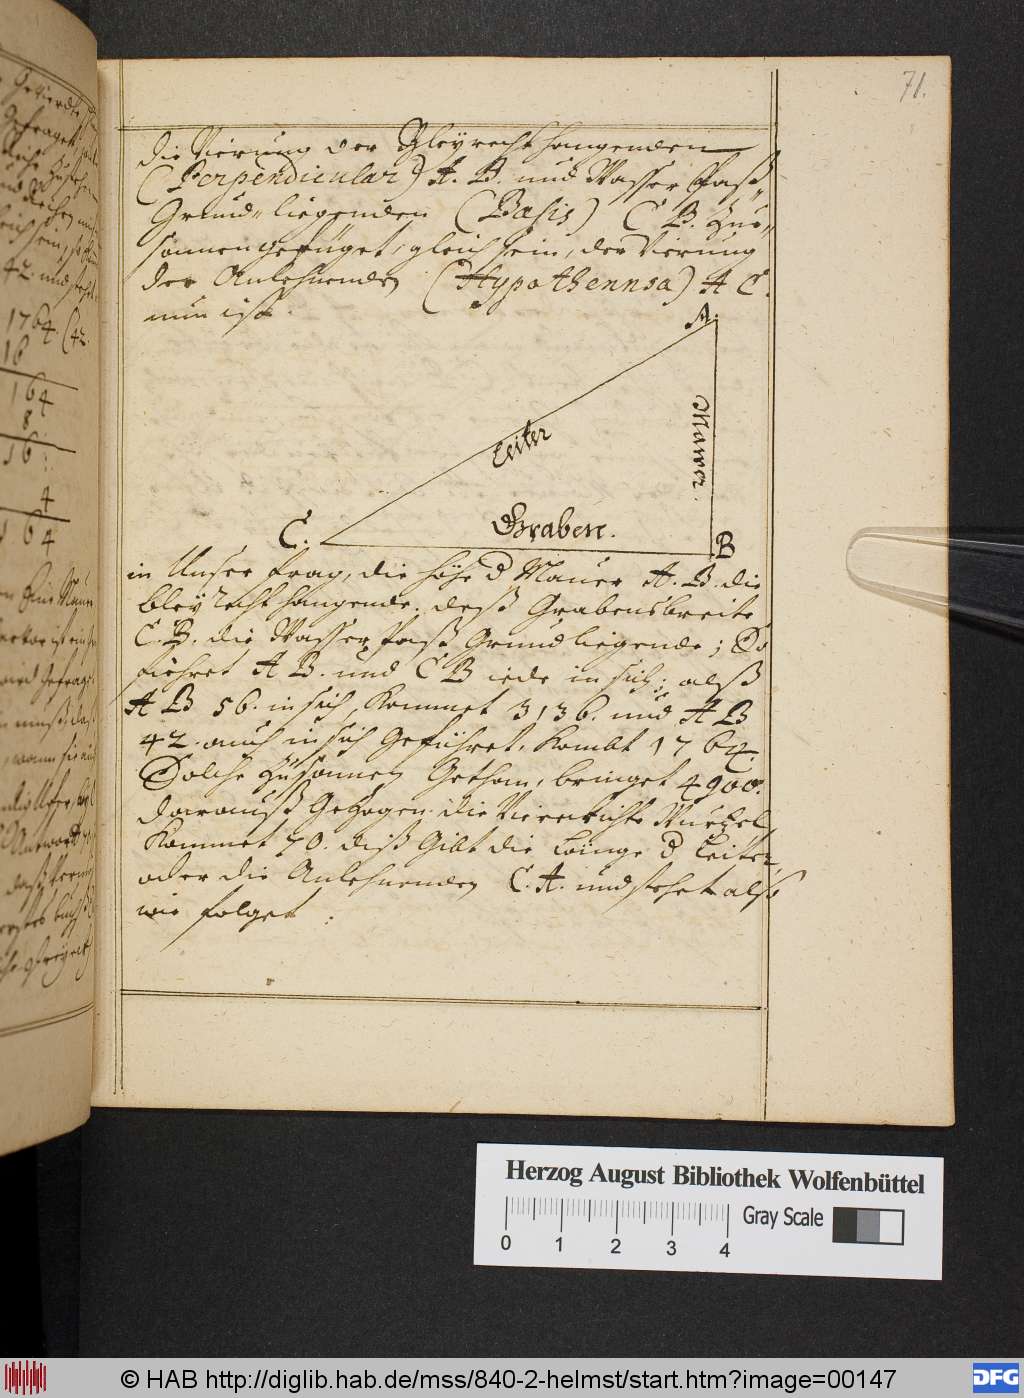 71.
die Vierung der Bleyrecht hangenden
(Perpendicular) A. B. und Wasser Pasß„
Grund„liegenden (Basis) C B. Zus„
sammengefüget, gleich sein, der Vierung
der Anlehnenden (Hypothennsa) A C.
nun ist.
A.
Leiter
Maurer
Graben.
C.
B
in Unser frag, die höhe d Mauer A. B. die
bleyrecht hangende. deß Grabensbreite
C. B. die Wasser Paß Grundliegende; So
führet A B. und C B iede in sich; alß
A B 56. in sich, Kommet 3136. und A B
42. auch in sich Geführet, Kombt 1764.
Solche Zusamen Gethan, bringet 4900.
darauß Gezogen die Viereichte Wurtzel,
Kommet 70. diß Gibt die Länge d Leiter,
oder die Anlehnenden C. A. und stehet also
wie folget:
1764. (42.
16
164
8
16
4
164
Herzog August Bibliothek Wolfenbüttel
Gray Scale
0 1 2 3 4
© HAB http://diglib.hab.de/mss/840-2-helmst/start.htm?image=00147
DFG